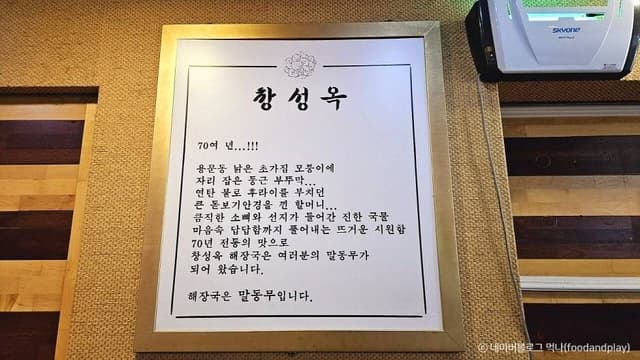 창성옥
70여 년...!!!
용문동 낡은 초가집 모퉁이에
자리 잡은 둥근 부뚜막...
연탄 불로 후라이를 부치던
큰 돋보기안경을 낀 할머니...
큼직한 소뼈와 선지가 들어간 진한 국물
마음속 답답함까지 풀어내는 뜨거운 시원함
70년 전통의 맛으로
창성옥 해장국은 여러분의 말동무가
되어 왔습니다.
해장국은 말동무입니다.
SKYONE
ⓒ 네이버블로그 먹니(foodandplay)